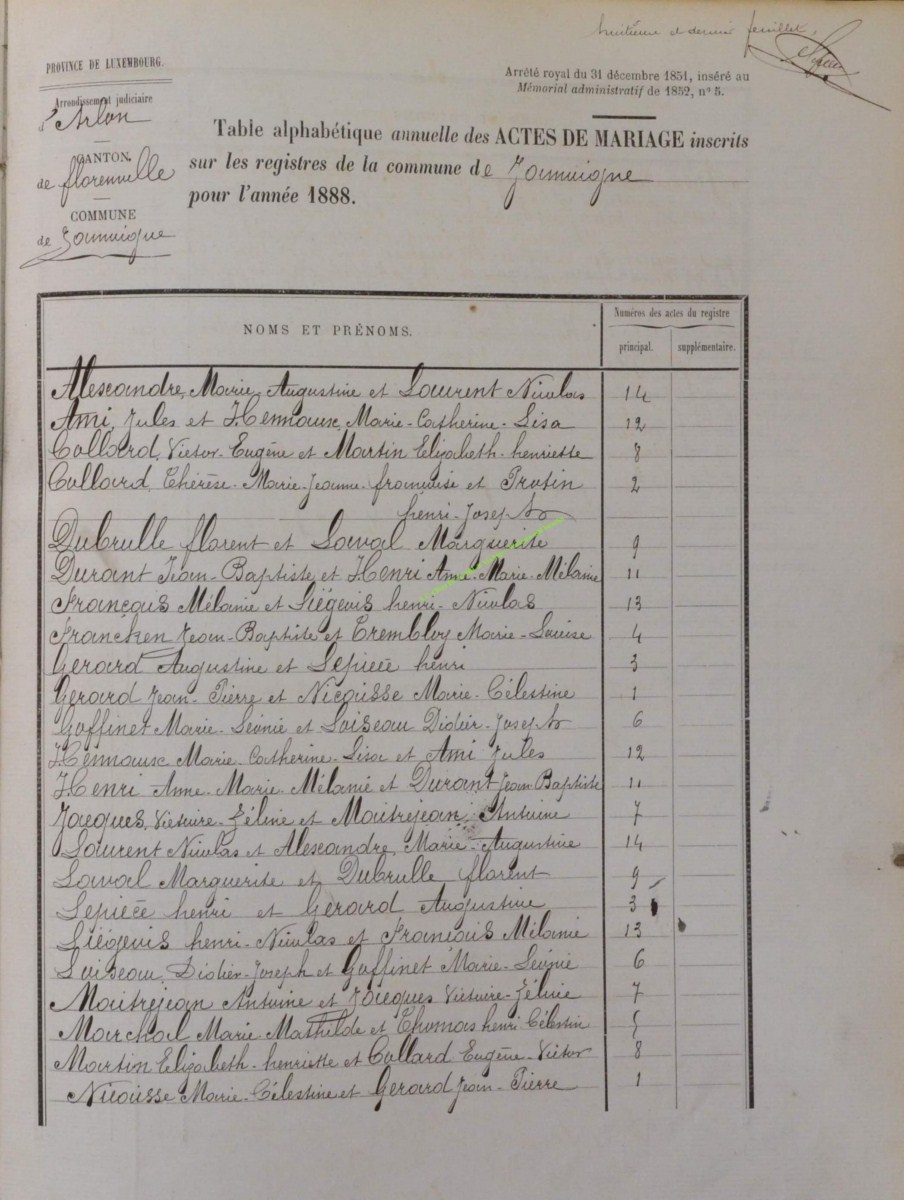 huitième et dernier feuillet,
PROVINCE DE LUXEMBOURG.
Arrêté royal du 31 décembre 1851, inséré au
Mémorial administratif de 1852, n° 5.
Arrondissement judiciaire
d'Arlon
CANTON
de florenville
COMMUNE
de Jamoigne
Table alphabétique annuelle des ACTES DE MARIAGE inscrits
sur les registres de la commune de Jamoigne
pour l'année 1888.
NOMS ET PRÉNOMS.
Numéros des actes du registre
principal. supplémentaire.
Alexandre, Marie, Augustine et Laurent Nicolas 14
Ami, Jules et Hennaux, Marie-Catherine-Lisa 12
Collard, Victor-Eugène et Martin Elizabeth-henriette 8
Collard, Thérèse-Marie-Jeanne-françoise et Protin 2
henri-Joseph
Dubrulle florent et Laval Marguerite 9
Durant Jean-Baptiste et Henri Anne-Marie-Mélanie 11
François Mélanie et Liégeois henri-Nicolas 13
Francken Jean-Baptiste et Trembloy Marie-Louise 4
Gerard Augustine et Lepièce henri 3
Gerard Jean-Pierre et Nicaisse Marie-Célestine 1
Goffinet Marie-Léonie et Loiseau Didier-Joseph 6
Hennaux Marie-Catherine-Lisa et Ami Jules 12
Henri Anne-Marie-Mélanie et Durant Jean-Baptiste 11
Jacques, Victoire-Zéline et Maitrejean Antoine 7
Laurent Nicolas et Alexandre, Marie-Augustine 14
Laval Marguerite et Dubrulle florent 9
Lepièce henri et Gerard Augustine 3
Liégeois henri-Nicolas et François Mélanie 13
Loiseau, Didier-Joseph et Goffinet Marie-Léonie 6
Maitrejean Antoine et Jacques Victoire-Zéline 7
Marchal Marie Mathilde et Thomas henri Célestin 5
Martin Elizabeth-henriette et Collard Eugène-Victor 8
Nicaisse Marie-Célestine et Gerard Jean-Pierre 1